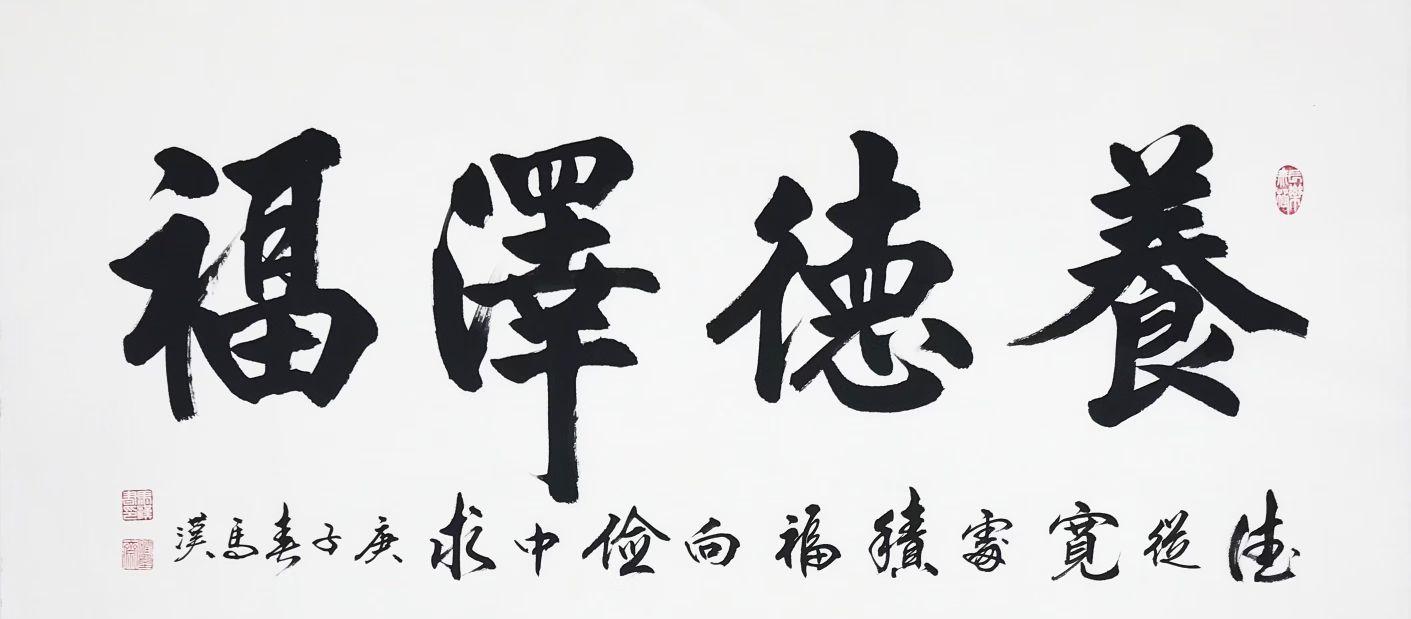 養德澤福
德從寬處積福向儉中求庚子春馬漢